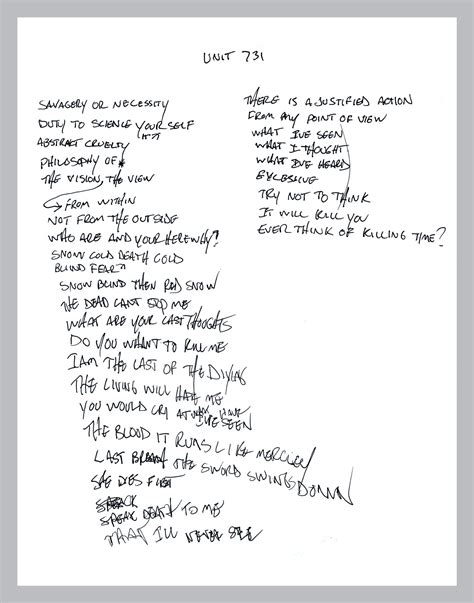 UNIT 731
SAVAGERY OR NECESSITY
DUTY TO SCIENCE YOURSELF
ABSTRACT CRUELTY
PHILOSOPHY OF
THE VISION, THE VIEW
FROM WITHIN
NOT FROM THE OUTSIDE
WHO ARE AND YOUR HERE WHY?
SNOW COLD DEATH COLD
BLIND FEAR
SNOW BLIND THEN RED SNOW
THE DEAD CANT STOP ME
WHAT ARE YOUR LAST THOUGHTS
DO YOU WANT TO KILL ME
I AM THE LAST OF THE DYING
THE LIVING WILL HATE ME
YOU WOULD CRY AT WHAT I HAVE
I'VE SEEN
THE BLOOD IT RUNS LIKE MERCURY
LAST THE SWORD SWINGS DOWN
SHE DIES FIRST
SPEAK DEATH TO ME
WHAT I'LL NEVER SEE
THERE IS A JUSTIFIED ACTION
FROM ANY POINT OF VIEW
WHAT I'VE SEEN
WHAT I THOUGHT
WHAT I'VE HEARD
EXCESSIVE
TRY NOT TO THINK
IT WILL KILL YOU
EVER THINK OF KILLING TIME?